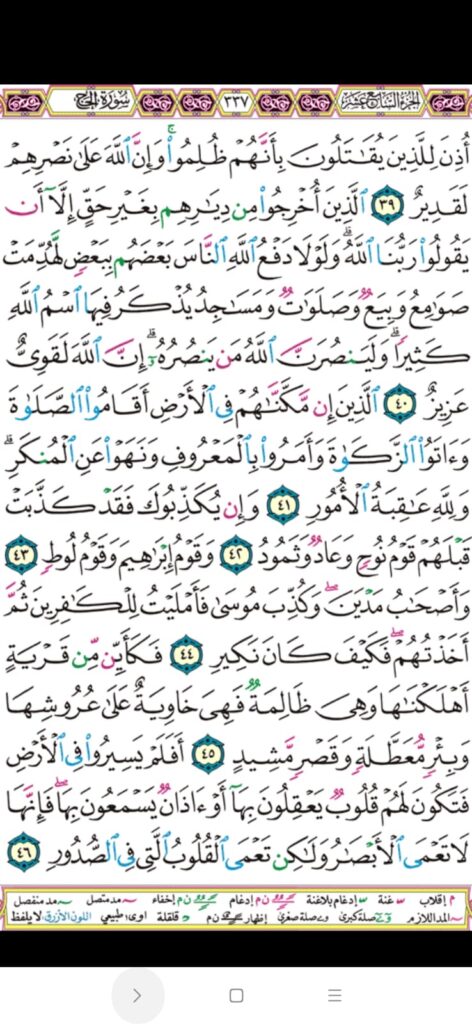 الجزء السابع عشر ٣٣٧ سورة الحج
أُذِنَ لِلَّذِينَ يُقَٰتَلُونَ بِأَنَّهُمْ ظُلِمُوا۟ ۚ وَإِنَّ ٱللَّهَ عَلَىٰ نَصْرِهِمْ
لَقَدِيرٌ ٣٩ ٱلَّذِينَ أُخْرِجُوا۟ مِن دِيَٰرِهِم بِغَيْرِ حَقٍّ إِلَّآ أَن
يَقُولُوا۟ رَبُّنَا ٱللَّهُ ۗ وَلَوْلَا دَفْعُ ٱللَّهِ ٱلنَّاسَ بَعْضَهُم بِبَعْضٍ لَّهُدِّمَتْ
صَوَٰمِعُ وَبِيَعٌ وَصَلَوَٰتٌ وَمَسَٰجِدُ يُذْكَرُ فِيهَا ٱسْمُ ٱللَّهِ
كَثِيرًا ۗ وَلَيَنصُرَنَّ ٱللَّهُ مَن يَنصُرُهُۥٓ ۗ إِنَّ ٱللَّهَ لَقَوِىٌّ
عَزِيزٌ ٤٠ ٱلَّذِينَ إِن مَّكَّنَّٰهُمْ فِى ٱلْأَرْضِ أَقَامُوا۟ ٱلصَّلَوٰةَ
وَءَاتَوُا۟ ٱلزَّكَوٰةَ وَأَمَرُوا۟ بِٱلْمَعْرُوفِ وَنَهَوْا۟ عَنِ ٱلْمُنكَرِ ۗ
وَلِلَّهِ عَٰقِبَةُ ٱلْأُمُورِ ٤١ وَإِن يُكَذِّبُوكَ فَقَدْ كَذَّبَتْ
قَبْلَهُمْ قَوْمُ نُوحٍ وَعَادٌ وَثَمُودُ ٤٢ وَقَوْمُ إِبْرَٰهِيمَ وَقَوْمُ لُوطٍ ٤٣
وَأَصْحَٰبُ مَدْيَنَ ۖ وَكُذِّبَ مُوسَىٰ فَأَمْلَيْتُ لِلْكَٰفِرِينَ ثُمَّ
أَخَذْتُهُمْ ۖ فَكَيْفَ كَانَ نَكِيرِ ٤٤ فَكَأَيِّن مِّن قَرْيَةٍ
أَهْلَكْنَٰهَا وَهِىَ ظَالِمَةٌ فَهِىَ خَاوِيَةٌ عَلَىٰ عُرُوشِهَا
وَبِئْرٍ مُّعَطَّلَةٍ وَقَصْرٍ مَّشِيدٍ ٤٥ أَفَلَمْ يَسِيرُوا۟ فِى ٱلْأَرْضِ
فَتَكُونَ لَهُمْ قُلُوبٌ يَعْقِلُونَ بِهَآ أَوْ ءَاذَانٌ يَسْمَعُونَ بِهَا ۖ فَإِنَّهَا
لَا تَعْمَى ٱلْأَبْصَٰرُ وَلَٰكِن تَعْمَى ٱلْقُلُوبُ ٱلَّتِى فِى ٱلصُّدُورِ ٤٦
م إقلاب غنة إدغام بلاغنة ن م إدغام ن م إخفاء مد متصل مد منفصل
المد اللازم صلة كبرى صلة صغرى إظهار ن م قلقلة اوى: طبيعي اللون الأزرق لا يلفظ